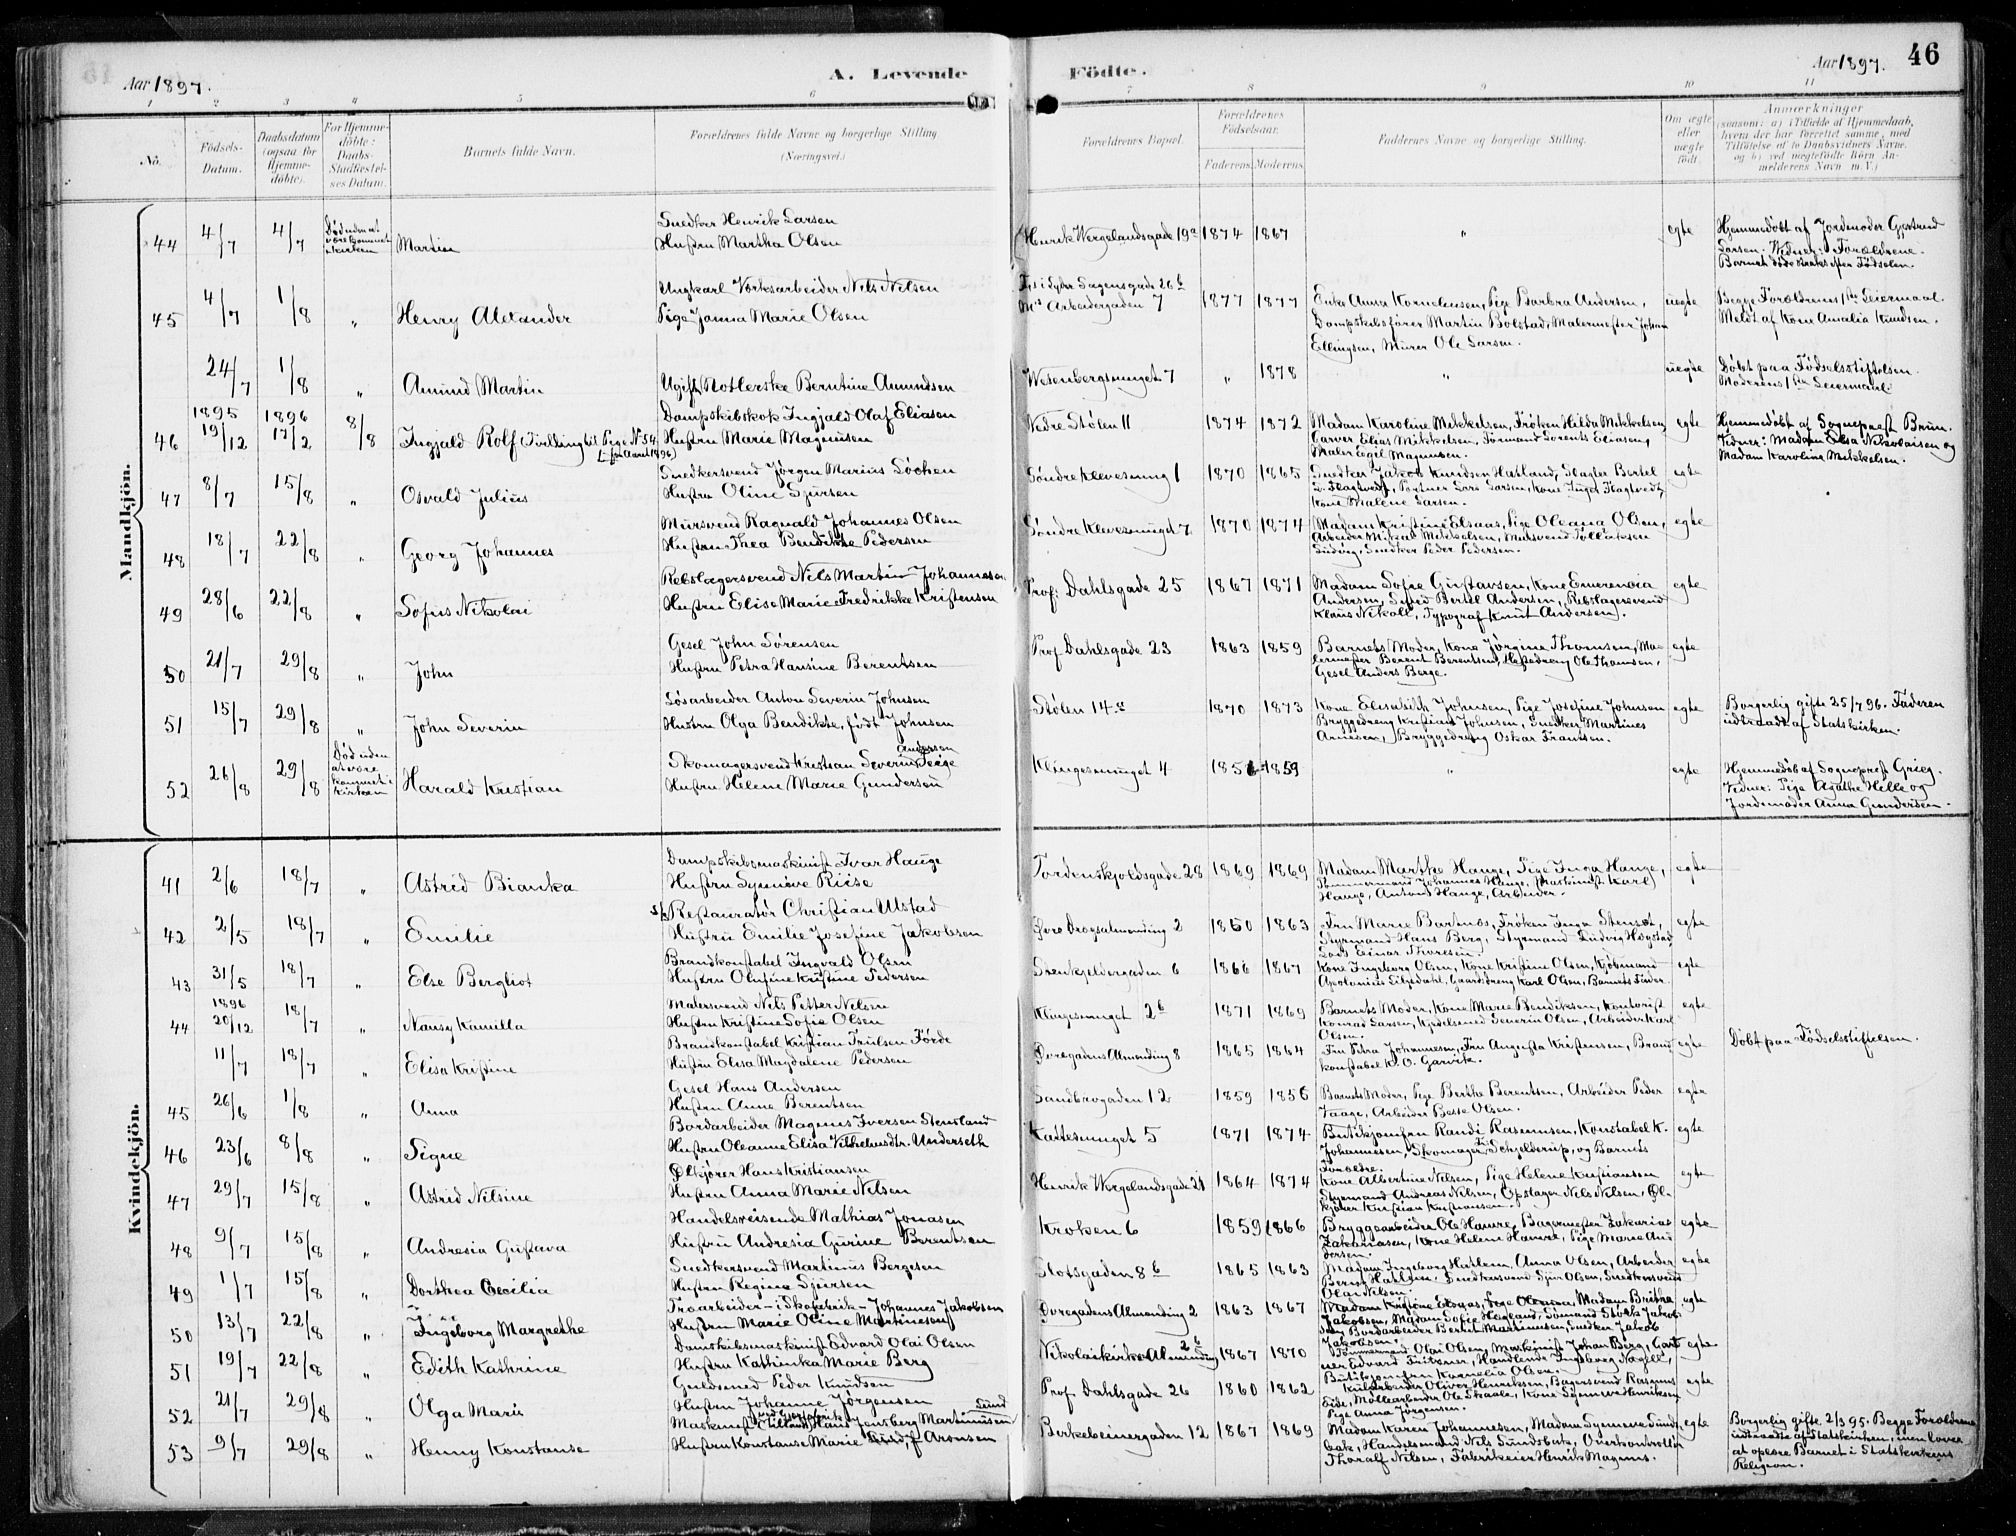 Aar 1897.
A. Levende Födte.
Aar 1897.
46
1 2 3 4 5 6 7 8 9 10 11
No.
Födsels-Datum.
Daabsdatum (ogsaa for Hjemme-döbte).
For Hjemme-döbte: Daabs-Stadfæstelses Datum.
Barnets fulde Navn.
Forældrenes fulde Navne og borgerlige Stilling. (Næringsvei.)
Forældrenes Bopæl.
Forældrenes Födselsaar.
Faderens. Moderens.
Faddernes Navne og borgerlige Stilling.
Om ægte eller uægte födt.
Anmærkninger (saasom: a) i Tilfælde af Hjemmedaab, hvem der har forrettet samme, med Tilföielse af to Daabsvidners Navne, og b) ved uægtefödte Börn Anmelderens Navn m. V.)
Mandkjön.
44 4/7 4/7 Död uden at være kommet i kirken Martin
Snedker Henrik Larsen
Hustru Martha Olsen
Henrik Wergelandsgade 19a 1874 1867 " egte
Hjemmedöbt af Jordemoder Gjertrud
Larsen. Vidner: Forældrene.
Barnet döde straks efter Födselen.
45 4/7 1/8 " Henry Alexander
Ungkarl Verksarbeider Nils Nilsen
Pige Janna Marie Olsen
Lyder Sagensgade 26b
Arbeidergaden 7 1877 1877
Enke Anna Korneliusen, Pige Barbra Andersen,
Dampskibsförer Martin Bolstad, Malermester Johan
Ellingsen, Murer Ole Larsen.
uegte
Begge Forældrenes 1ste Leiermaal.
Meldt af Kone Amalia Knudsen.
24/7 1/8 " Amund Martin
Ugift Notlerske Berntine Amundsen
Wesenbergsmuget 7 " 1878 " uegte
Döbt paa Födselsstiftelsen.
Moderens 1ste Leiermaal.
1895 1896
46 19/12 17/2 8/8 Ingjald Rolf (Tvilling til Pige No 54
for Aaret 1896)
Dampskibskok Ingjald Olaf Eliasen
Hustru Marie Magnusen
Nedre Stölen 11 1874 1872
Madam Karoline Mikkelsen, Fröken Hilda Mikkelsen,
Garver Elias Mikkelsen, Formand Lorents Eliasen,
Maler Egil Magnusen.
egte
Hjemmedöbt af Sogneprest Brun.
Vidner: Madam Elsa Nikolaisen og
Madam Karolina Mikkelsen.
47 8/7 15/8 " Osvald Julius
Snedkersvend Jörgen Marius Löchen
Hustru Oline Sjursen
Söndre Klevesmug 1 1870 1865
Snedker Jakob Knudsen Hatland, Slagter Bertel
L. Flagtvedt, Portner Lars Larsen, Kone Inger Flagtvedt,
Kone Malene Larsen.
egte
48 18/7 22/8 " Georg Johannes
Mursvend Ragnald Johannes Olsen
Hustru Thea Bendikte Pedersen
Söndre Klevesmuget 7 1870 1874
Madam Kristine Elsaas, Pige Oleana Olsen,
Arbeider Mikal Mikkelsen, Mursvend Tollaksen
Ludvig, Snedker Peder Pedersen.
egte
49 28/6 22/8 " Sofus Nikolai
Rebslagersvend Nils Martin Johannesen
Hustru Elise Marie Fredrikke Kristensen
Prof: Dahlsgade 25 1867 1871
Madam Sofie Gustavsen, Kone Emerencia
Andersen, Smed Bertel Andersen, Rebslagersvend
Klaus Nikoll, Typograf Knut Andersen.
egte
50 21/7 29/8 " John
Gesel John Sörensen
Hustru Petra Hansine Berentsen
Prof Dahlsgade 23 1863 1859
Barnets Moder, Kone Jörgine Thomsen, Ma-
lermester Berent Berentsen, Ole Thomsen,
Gesel Anders Berge.
egte
51 15/7 29/8 " John Severin
Lösarbeider Anton Severin Johnsen
Hustru Olga Bendikte, födt Johnsen
Stölen 14c 1870 1873
Kone Elisabeth Johnsen, Pige Josefine Johnsen
Bryggedreng Kristian Johnsen, Snedker Martines
Arnesen, Bryggedreng Oskar Frantsen.
egte
Borgerlig gifte 25/7 96. Faderen
udtraadt af Statskirken.
52 26/8 29/8 Död uden at være kommet i kirken Harald Kristian
Skomagersvend Kristian Severin Andersen
Hustru Helene Marie Gundersen
Klingesmuget 4 1856 1859 " egte
Hjemmedöb af Sogneprest Grieg.
Vidner: Pige Agathe Hille og
Jordemoder Anna Gundersen.
Kvindekjön.
41 2/6 18/7 " Astrid Bianka
Dampskibsmaskinist Ivar Hauge
Hustru Synnöve Riise
Tordenskjoldsgade 28 1869 1869
Madam Marthe Hauge, Pige Inga Hauge,
Tömmermand Johannes Hauge, Maskinist Karl
Hauge, Anton Hauge, Arbeider.
egte
42 2/5 18/7 " Emilie
Restauratör Christian Ulstad
Hustru Emilie Josefine Jakobsen
Övre Dragsalmending 2 1860 1863
Fru Marie Bartnes, Fröken Inga Stensöt,
Styrmand Hans Berg, Styrmand Ludvig Hegstad
Lods Einar Thoresen.
egte
43 31/5 18/7 " Else Bergliot
Brandkonstabel Ingvald Olsen
Hustru Olufine Kristine Pedersen
Stenkjeldergaden 6 1866 1867
Kone Ingeborg Olsen, Kone Kristine Olsen, Kjöbmand
Apolonius Liljedahl, Gaardsdreng Karl Olsen, Barnets Fader.
egte
1896
44 20/12 18/7 " Nansy Kamilla
Malersvend Nils Petter Nilsen
Hustru Kristine Sofie Olsen
Klingesmuget 2b 1871 1869
Barnets Moder, Kone Marie Bendiksen, Kontorist
Konrad Larsen, Kjedelsmed Severin Olsen, Arbeider Karl
Olsen.
egte
11/7 18/7 " Elisa Kristine
Brandkonstabel Kristian Trulsen Förde
Hustru Elisa Magdalene Pedersen
Övregadens Almending 8 1865 1864
Fru Petra Johannesen, Fru Augusta Kristensen, Brand-
konstabel K. O. Garvik.
egte
Döbt paa Födselsstiftelsen.
45 26/6 1/8 " Anna
Gesel Hans Andersen
Hustru Anne Berentsen
Sandbrogaden 12 1859 1856
Barnets Moder, Pige Berthe Berentsen, Arbeider Peder
Vaage, Arbeider Besse Olsen.
egte
46 23/6 8/8 " Signe
Bordarbeider Magnus Iversen Stensland
Hustru Oleanne Elisa Vilhelmsdtr. Underseth
Kattesmuget 5 1871 1874
Butikjomfru Randi Rasmusen, Konstabel K.
Johannesen, Skomager Schjelderup, og Barnets
Forældre.
egte
47 29/7 15/8 " Astrid Nilsine
Ölkjörer Hans Kristiansen
Hustru Anna Marie Nilsen
Henrik Wergelandsgade 21 1864 1874
Kone Albertine Nilsen, Pige Helene Kristiansen
Styrmand Andreas Nilsen, Opslager Nils Nilsen, Öl-
kjörer Kristian Kristiansen.
egte
48 9/7 15/8 " Andresia Gustava
Handelsreisende Mathias Jonasen
Hustru Andresia Gurine Berentsen
Kroken 6 1859 1866
Bryggearbeider Ole Hamre, Bagermester Zakarias
Zakariasen, Kone Helene Hamre, Pige Marie An-
dersen.
egte
49 1/7 15/8 " Dorthea Cecilia
Snedkersvend Martinus Bergesen
Hustru Regine Sjursen
Slotsgaden 8b 1865 1863
Madam Ingeborg Hatlem, Anna Olsen, Arbeider
Bernt Hatlem, Snedkersvend Sjur Olsen, Snedkersvend
Olai Nilsen.
egte
50 13/7 22/8 " Ingeborg Margrethe
Træarbeider - i Skofabrik - Johannes Jakobsen
Hustru Marie Oline Martinesen
Övregadens Almending 2 1863 1867
Madam Kristine Elsaas, Pige Oleana, Madam Britha
Jakobsen, Madam Sofie Hegland, Sömand Störk Jakob-
sen, Bordarbeider Bertil Martinusen, Snedker Jakob
Jakobsen.
egte
51 19/7 22/8 " Edith Kathrine
Damskibsmaskinist Edvard Olai Olsen
Hustru Kathinka Marie Berg
Nikolaikirke Almending 2b 1867 1870
Tömmermand Olai Olsen, Maskinist Johan Berg, Gart-
ner Edvard Fritzner, Handlende Ingeborg Nagell,
Butiksjomfru Kornelia Olsen.
egte
52 21/7 29/8 " Olga Marie
Guldsmed Peder Knudsen
Hustru Johanne Jörgensen
Prof Dahlsgade 26 1860 1862
Kularbeider Oliver Henriksen, Bagersvend Rasmus
Eide, Möllearbeider Ole Skaale, Kone Synneve Henriksen,
Pige Anna Jörgensen.
egte
53 9/7 29/8 " Henny Konstanse
Maskinist Hans Jensberg Martinusen Lund
Hustru Konstanse Marie f. Aronsen
Birkebeinergaden 12 1867 1869
Madam Karen Johannesen, Madam Synneve Sunds-
bak, Handelsmand Nils Sundsbak, Overkontrollör
Thoralf Nilsen, Fabrikeier Henrik Magnus.
egte
Borgerlig gifte 2/3 95. Begge Forældrene
udtraadte af Statskirken, men lover
at opdra Barnet i Statskirkens
Religion.